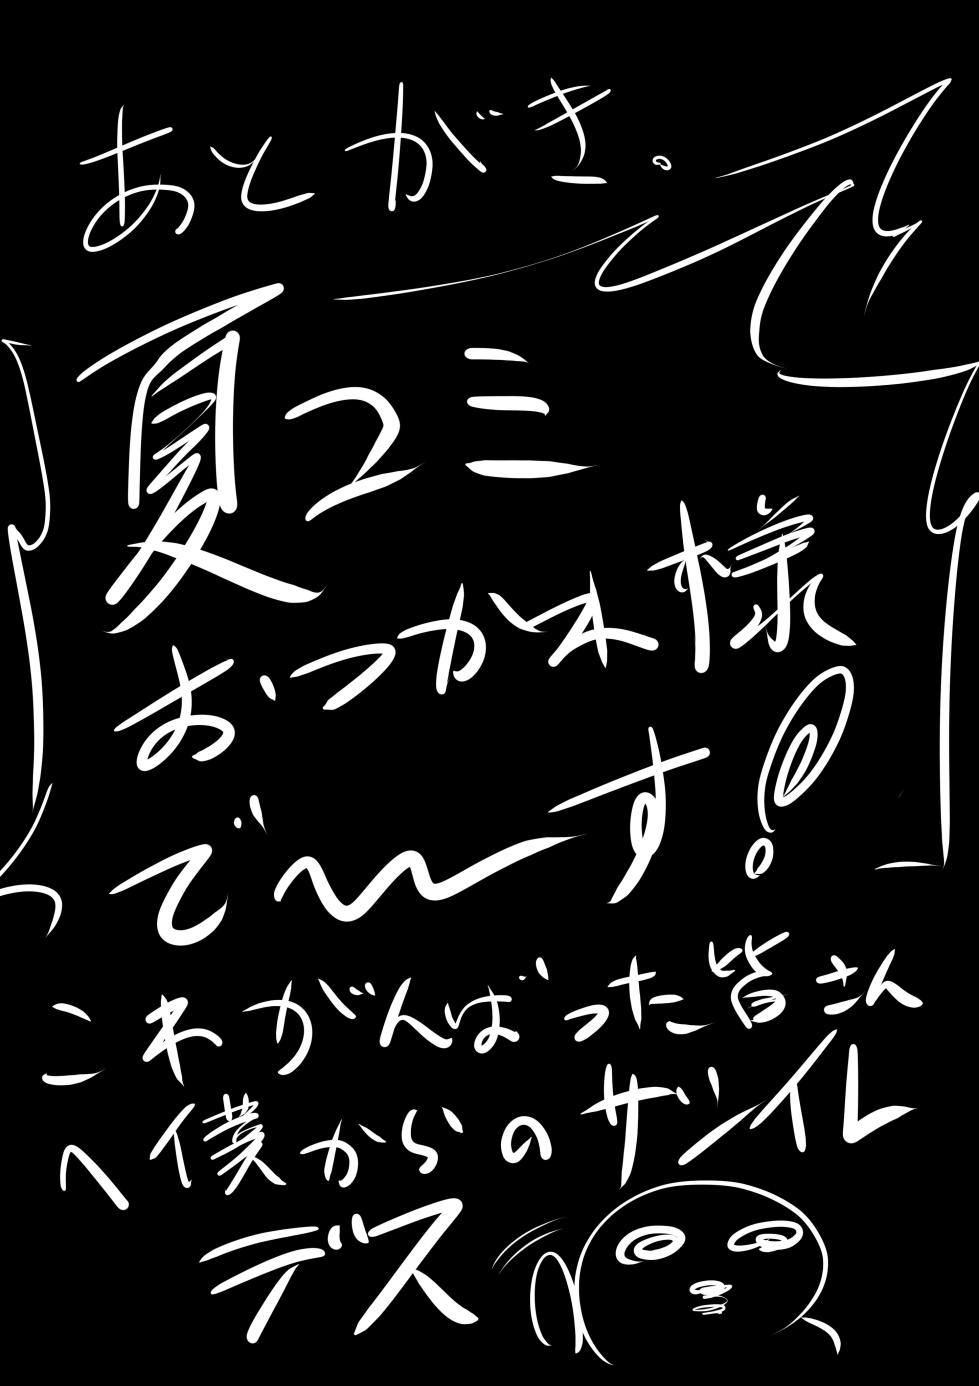 あとがき。
夏コミ
おつかれ様
で〜〜す!
これがんばった皆さん
へ僕からのザンイレ
デス